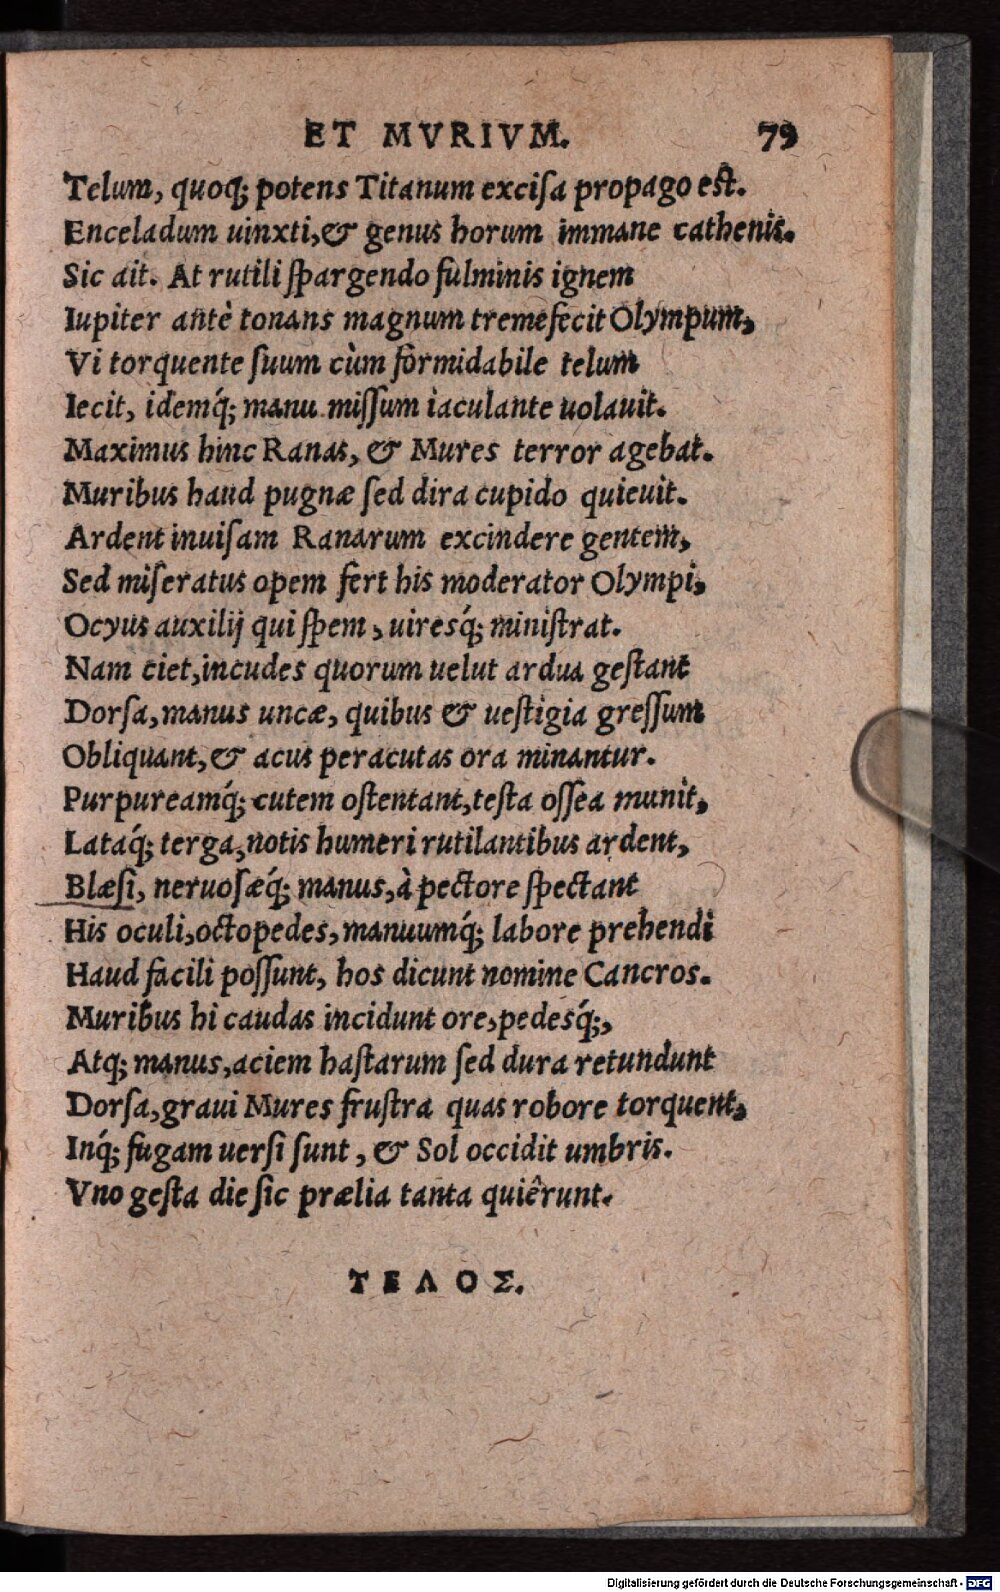 ET MVRIVM. 79
Telum, quoq; potens Titanum excisa propago est.
Enceladum uinxti, & genus horum immane cathenis.
Sic ait. At rutili spargendo fulminis ignem
Iupiter antè tonans magnum tremefecit Olympum,
Vi torquente suum cùm formidabile telum
Iecit, idemq́; manu missum iaculante uolauit.
Maximus hinc Ranas, & Mures terror agebat.
Muribus haud pugnæ sed dira cupido quieuit.
Ardent inuisam Ranarum excindere gentem,
Sed miseratus opem fert his moderator Olympi,
Ocyus auxilij qui spem, uiresq́; ministrat.
Nam ciet, incudes quorum uelut ardua gestant
Dorsa, manus uncæ, quibus & uestigia gressum
Obliquant, & acus peracutas ora minantur.
Purpureamq́; cutem ostentant, testa ossea munit,
Lataq́; terga, notis humeri rutilantibus ardent,
Blæsi, neruosæq́; manus, à pectore spectant
His oculi, octopedes, manuumq́; labore prehendi
Haud facili possunt, hos dicunt nomine Cancros.
Muribus hi caudas incidunt ore, pedesq́;,
Atq; manus, aciem hastarum sed dura retundunt
Dorsa, graui Mures frustra quas robore torquent,
Inq́; fugam uersi sunt, & Sol occidit umbris.
Vno gesta die sic prælia tanta quiêrunt.
ΤΕΛΟΣ.
Digitalisierung gefördert durch die Deutsche Forschungsgemeinschaft - DFG